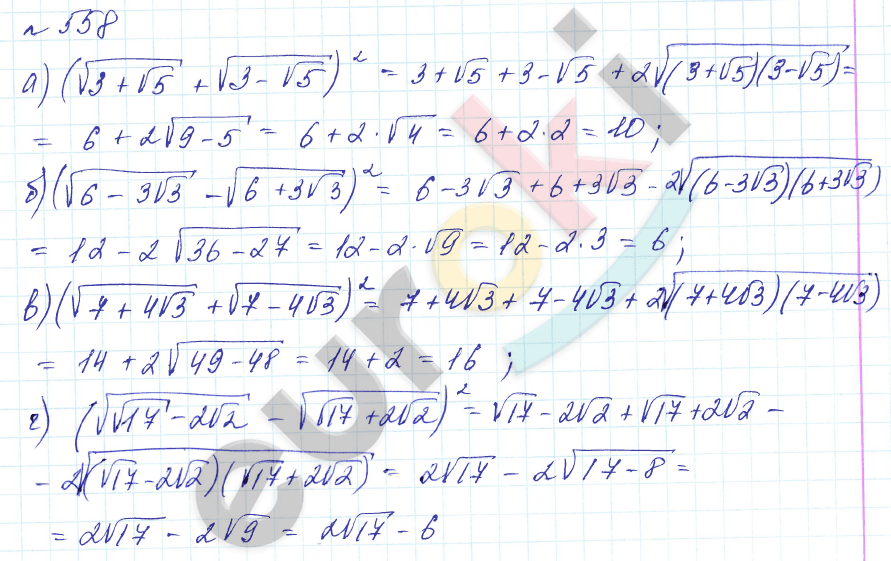 № 558
а) (√(3 + √5) + √(3 − √5))² = 3 + √5 + 3 − √5 + 2√((3 + √5)(3 − √5)) =
= 6 + 2√(9 − 5) = 6 + 2 · √4 = 6 + 2 · 2 = 10 ;
б) (√(6 − 3√3) − √(6 + 3√3))² = 6 − 3√3 + 6 + 3√3 − 2√((6 − 3√3)(6 + 3√3))
= 12 − 2√(36 − 27) = 12 − 2 · √9 = 12 − 2 · 3 = 6 ;
в) (√(7 + 4√3) + √(7 − 4√3))² = 7 + 4√3 + 7 − 4√3 + 2√((7 + 4√3)(7 − 4√3))
= 14 + 2√(49 − 48) = 14 + 2 = 16 ;
г) (√(√17 − 2√2) − √(√17 + 2√2))² = √17 − 2√2 + √17 + 2√2 −
− 2√((√17 − 2√2)(√17 + 2√2)) = 2√17 − 2√(17 − 8) =
= 2√17 − 2√9 = 2√17 − 6
euroki